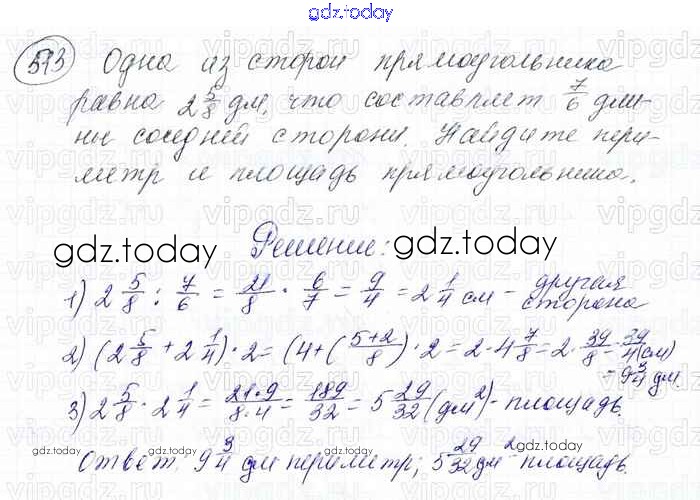 gdz.today
593 Одна из сторон прямоугольника
равна 2 5/8 дм, что составляет 7/6 дли-
ны соседней стороны. Найдите пери-
метр и площадь прямоугольника.
gdz.today Решение: gdz.today
1) 2 5/8 : 7/6 = 21/8 · 6/7 = 9/4 = 2 1/4 см – другая сторона
2) (2 5/8 + 2 1/4) · 2 = (4 + (5+2/8) · 2 = 2 · 4 7/8 = 2 · 39/8 = 39/4 (см)
= 9 3/4 дм
3) 2 5/8 · 2 1/4 = 21·9/8·4 = 189/32 = 5 29/32 (дм²) – площадь.
Ответ. 9 3/4 дм периметр; 5 29/32 дм² площадь.
gdz.today gdz.today